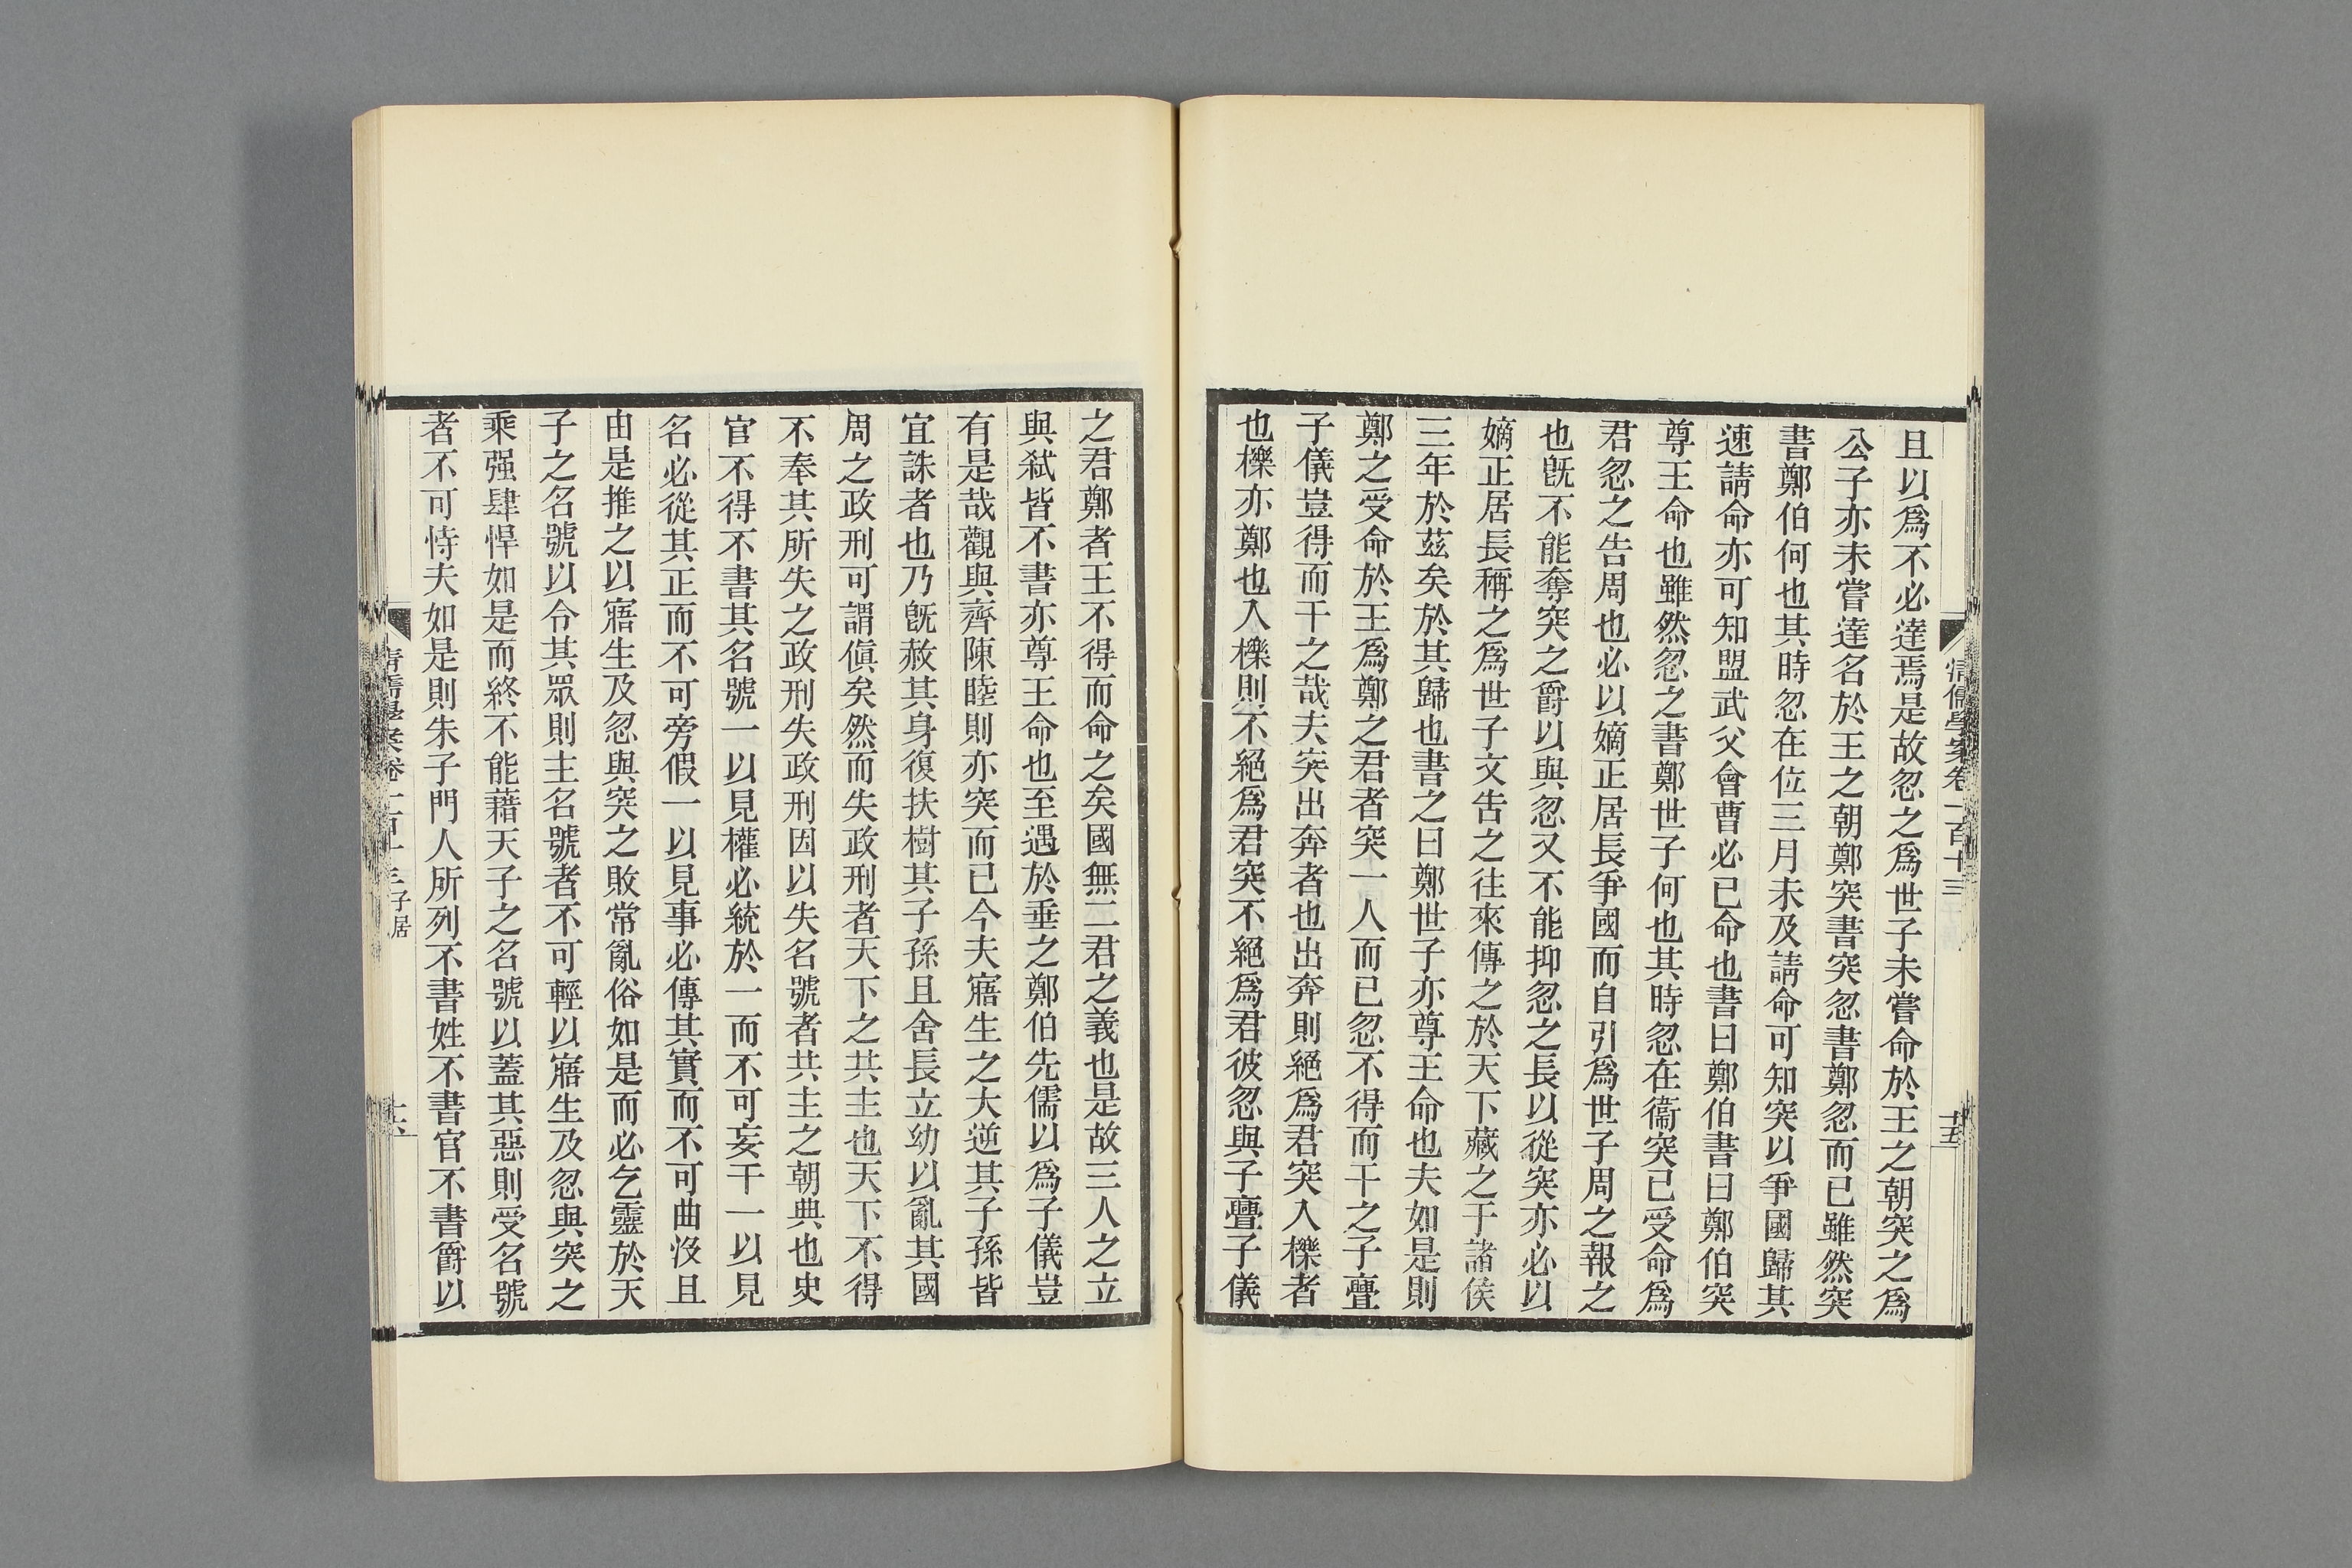 清儒學案卷一百十三
十五
且以爲不必達焉是故忽之爲世子未嘗命於王之朝突之爲
公子亦未嘗達名於王之朝鄭突書突忽書鄭忽而已雖然突
書鄭伯何也其時忽在位三月未及請命可知突以爭國歸其
速請命亦可知盟武父會曹必已命也書曰鄭伯書曰鄭伯突
尊王命也雖然忽之書鄭世子何也其時忽在衞突已受命爲
君忽之告周也必以嫡正居長爭國而自引爲世子周之報之
也旣不能奪突之爵以與忽又不能抑忽之長以從突亦必以
嫡正居長稱之爲世子文告之往來傳之於天下藏之于諸侯
三年於茲矣於其歸也書之曰鄭世子亦尊王命也夫如是則
鄭之受命於王爲鄭之君者突一人而已忽不得而干之子亹
子儀豈得而干之哉夫突出奔者也出奔則絕爲君突入櫟者
也櫟亦鄭也入櫟則不絕爲君突不絕爲君彼忽與子亹子儀
之君鄭者王不得而命之矣國無二君之義也是故三人之立
與弒皆不書亦尊王命也至遇於垂之鄭伯先儒以爲子儀豈
有是哉觀與齊陳睦則亦突而已今夫寤生之大逆其子孫皆
宜誅者也乃旣赦其身復扶樹其子孫且舍長立幼以亂其國
周之政刑可謂傎矣然而失政刑者天下之共主也天下不得
不奉其所失之政刑失政刑因以失名號者共主之朝典也史
官不得不書其名號一以見權必統於一而不可妄干一以見
名必從其正而不可旁假一以見事必傳其實而不可曲沒且
由是推之以寤生及忽與突之敗常亂俗如是而必乞靈於天
子之名號以令其眾則主名號者不可輕以寤生及忽與突之
乘强肆悍如是而終不能藉天子之名號以蓋其惡則受名號
者不可恃夫如是則朱子門人所列不書姓不書官不書爵以
清儒學案卷一百十三子居
十六